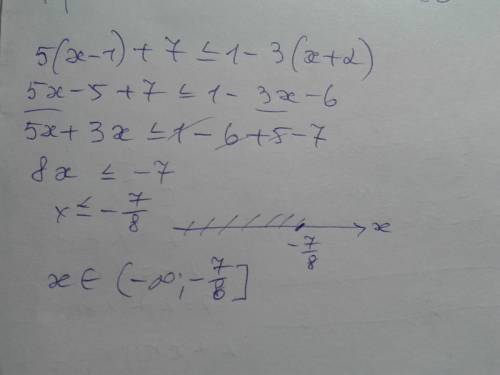 5(x-1) + 7 ≤ 1 - 3(x+2)
5x - 5 + 7 ≤ 1 - 3x - 6
5x + 3x ≤ 1 - 6 + 5 - 7
8x ≤ -7
x ≤ -7/8
x
-7/8
x ∈ (-∞; -7/8]